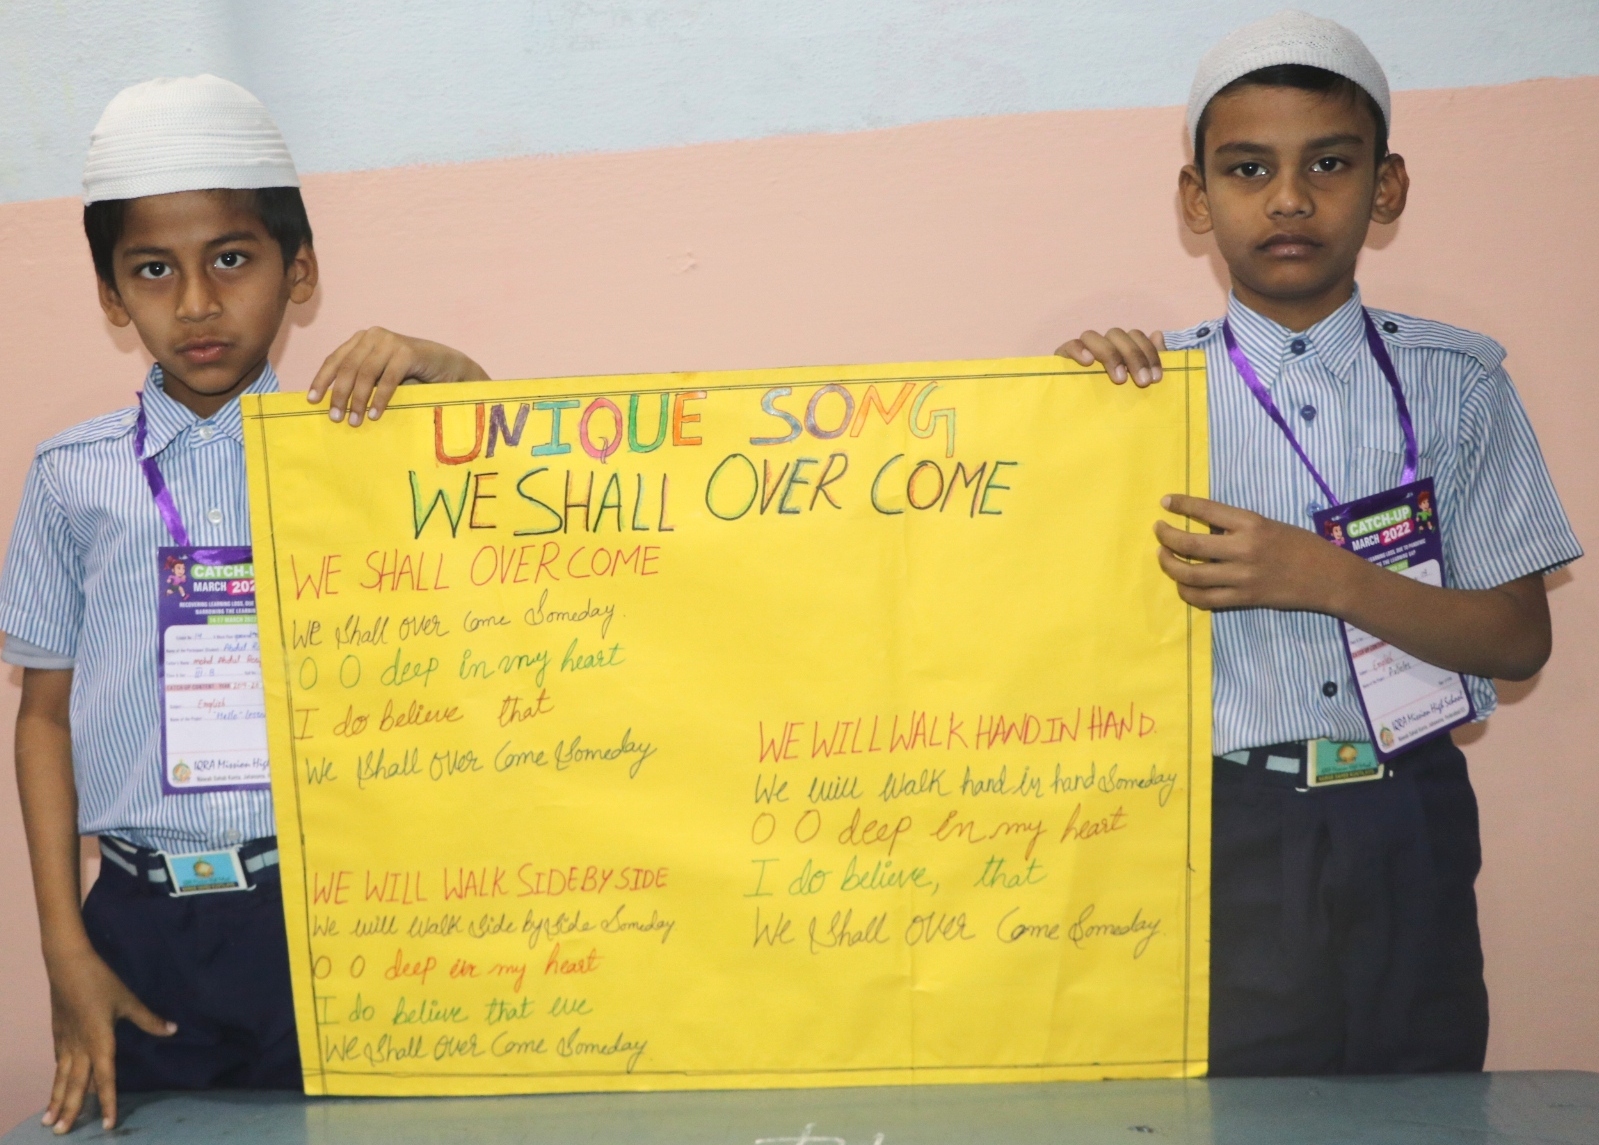 UNIQUE SONG
WE SHALL OVER COME
WE SHALL OVER COME
We Shall over come Someday.
O O deep in my heart
I do believe that
We Shall over Come Someday
WE WILL WALK SIDE BY SIDE
We will walk Side by Side Someday
O O deep in my heart
I do believe that we
We Shall over Come Someday.
WE WILL WALK HAND IN HAND.
We will walk hand in hand Someday.
O O deep in my heart
I do believe, that
We Shall over Come Someday.
CATCH-U
MARCH 202
RECOVERING LEARNING LOSS, DUE
NARROWING THE LEARNING
14-17 MARCH 202
Abdul
mohd Abdul
English
"Hello"
IQRA Mission High
CATCH-UP
MARCH 2022
LEARNING LOSS, DUE TO PANDEMIC
THE LEARNING GAP
English
IQRA Mission High School